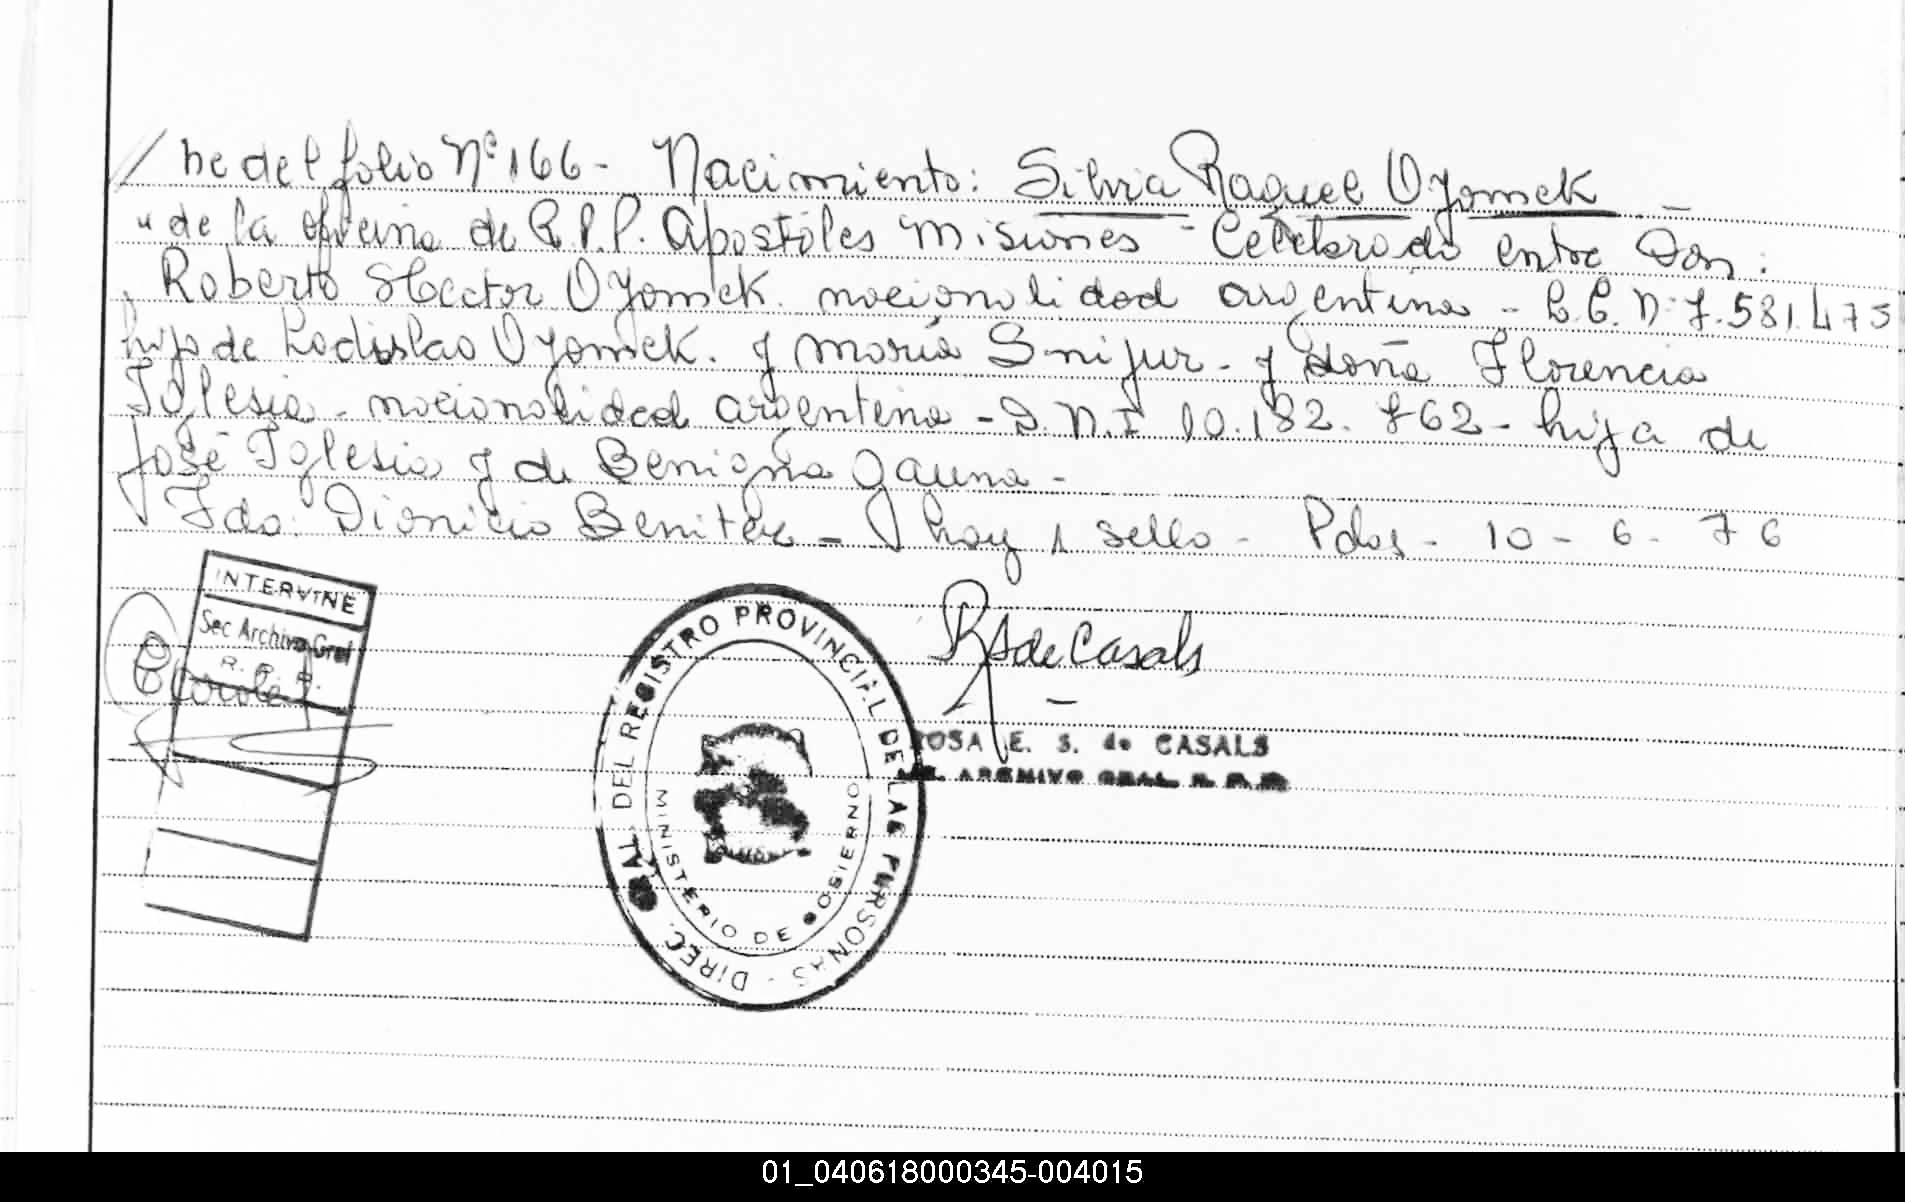 / ne del folio Nº 166 - Nacimiento: Silvia Raquel Oyomek -
" de la oficina de R.P.P. Apostóles Misiones - Celebrado entre Don:
Roberto Hector Oyomek. nacionalidad argentina - L.E. Nº 7.581.475
hijo de Ladislao Oyomek. y María Snijur - y doña Florencia
Iglesia - nacionalidad argentina - D.N.I 10.182.862 - hija de
José Iglesia y de Benigna Gauna -
Fdo: Dionicio Benitez - hay 1 sello - Pdas - 10 - 6 - 76
INTERVINE
Sec Archivo Gral
R. P. P.
DIREC. GRAL. DEL REGISTRO PROVINCIAL DE LAS PERSONAS -
MINISTERIO DE GOBIERNO
RSdeCasals
ROSA E. S. de CASALS
ARCHIVO GRAL. R. P. P.
01_040618000345-004015